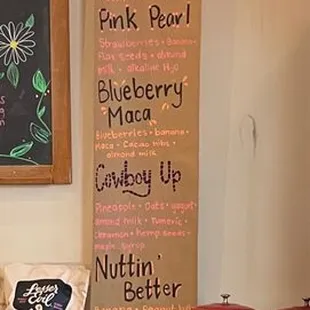 Pink Pearl
Strawberries • Banana •
Flax seeds • almond
milk • alkaline H2o
Blueberry
Maca
Blueberries • banana •
maca • Cacao nibs •
almond milk
Cowboy Up
Pineapple • Oats • yogurt •
almond milk • Tumeric •
Cinnamon • hemp seeds •
maple syrup
Nuttin'
Better
Banana • Peanut
Lesser
Evil